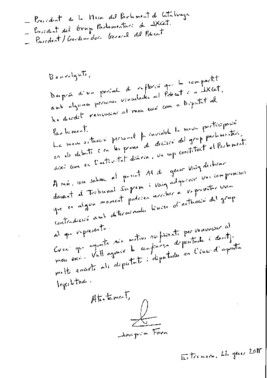 - President de la Mesa del Parlament de Catalunya
- President del Grup Parlamentari de JxCat
- President / Coordinador General del PDeCAT
Benvolguts,
Després d'un període de reflexió que he compartit
amb algunes persones vinculades al PDeCAT i a JxCat,
he decidit renunciar al meu escó com a Diputat al
Parlament.
La meva situació personal fa inviable la meva participació
en els debats i en les preses de decisió del grup parlamentari,
així com en l'activitat diària, un cop constituït el Parlament.
A més, com sabeu, el passat 11 de gener vaig declarar
davant el Tribunal Suprem i vaig adquirir uns compromisos
que en algun moment podrien arribar a representar una
contradicció amb determinades línies d'actuació del grup
al que represento.
Crec que aquests són motius suficients per renunciar al
meu escó. Vull agrair la confiança dipositada i desitjo
molts encerts als diputats i diputades en l'inici d'aquesta
legislatura.
Atentament,
Joaquim Forn
Estremera, gener 2018